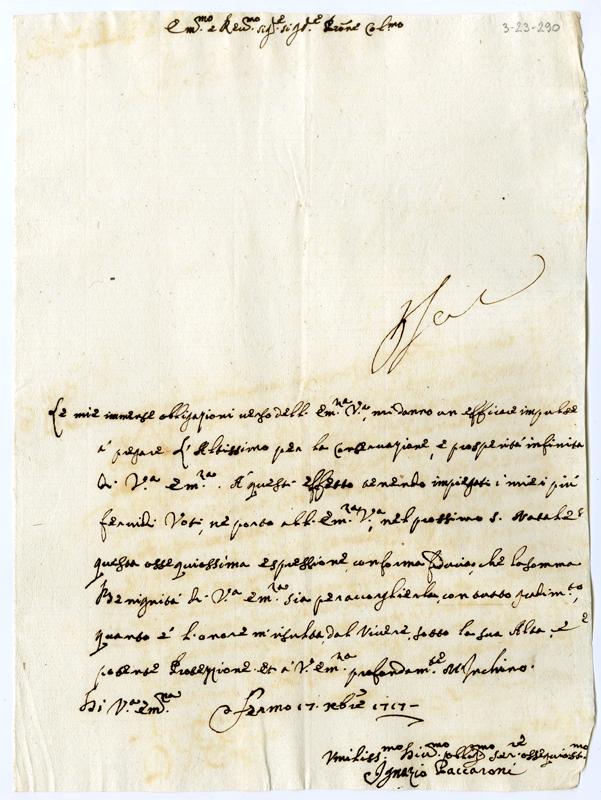 Em.mo e Reu.mo Sig.re Sig.re Prone Col.mo
3-23-290
Le mie immense obligazioni uerso dell' Em.za V.a, mi danno un efficace impulse
a' pregare L'Altissimo per la Conseruazione, e prosperità infinita
di V.a Em.za. A' questo effetto auendo impiegati i miei più
feruidi Voti, ne porto all' Em.za V.a, nel prossimo S. Natale
questa ossequiosissima espressione, con ferma fiducia, che la somma
Benignità di V.a Em.za sia per accoglierla, con tutto gradim.to,
quanto è l'onore mi risulta, dal Viuere, sotto la sua Alta, e
potente Protezzione. Et à V.a Em.za profondam.te M'Inchino.
Di V.a Em.za Fermo 17. Xbre 1717
Vmiliss.mo Diu.mo Oblig.mo Ser.re ossequiosis.mo
Ignazio Paccaroni